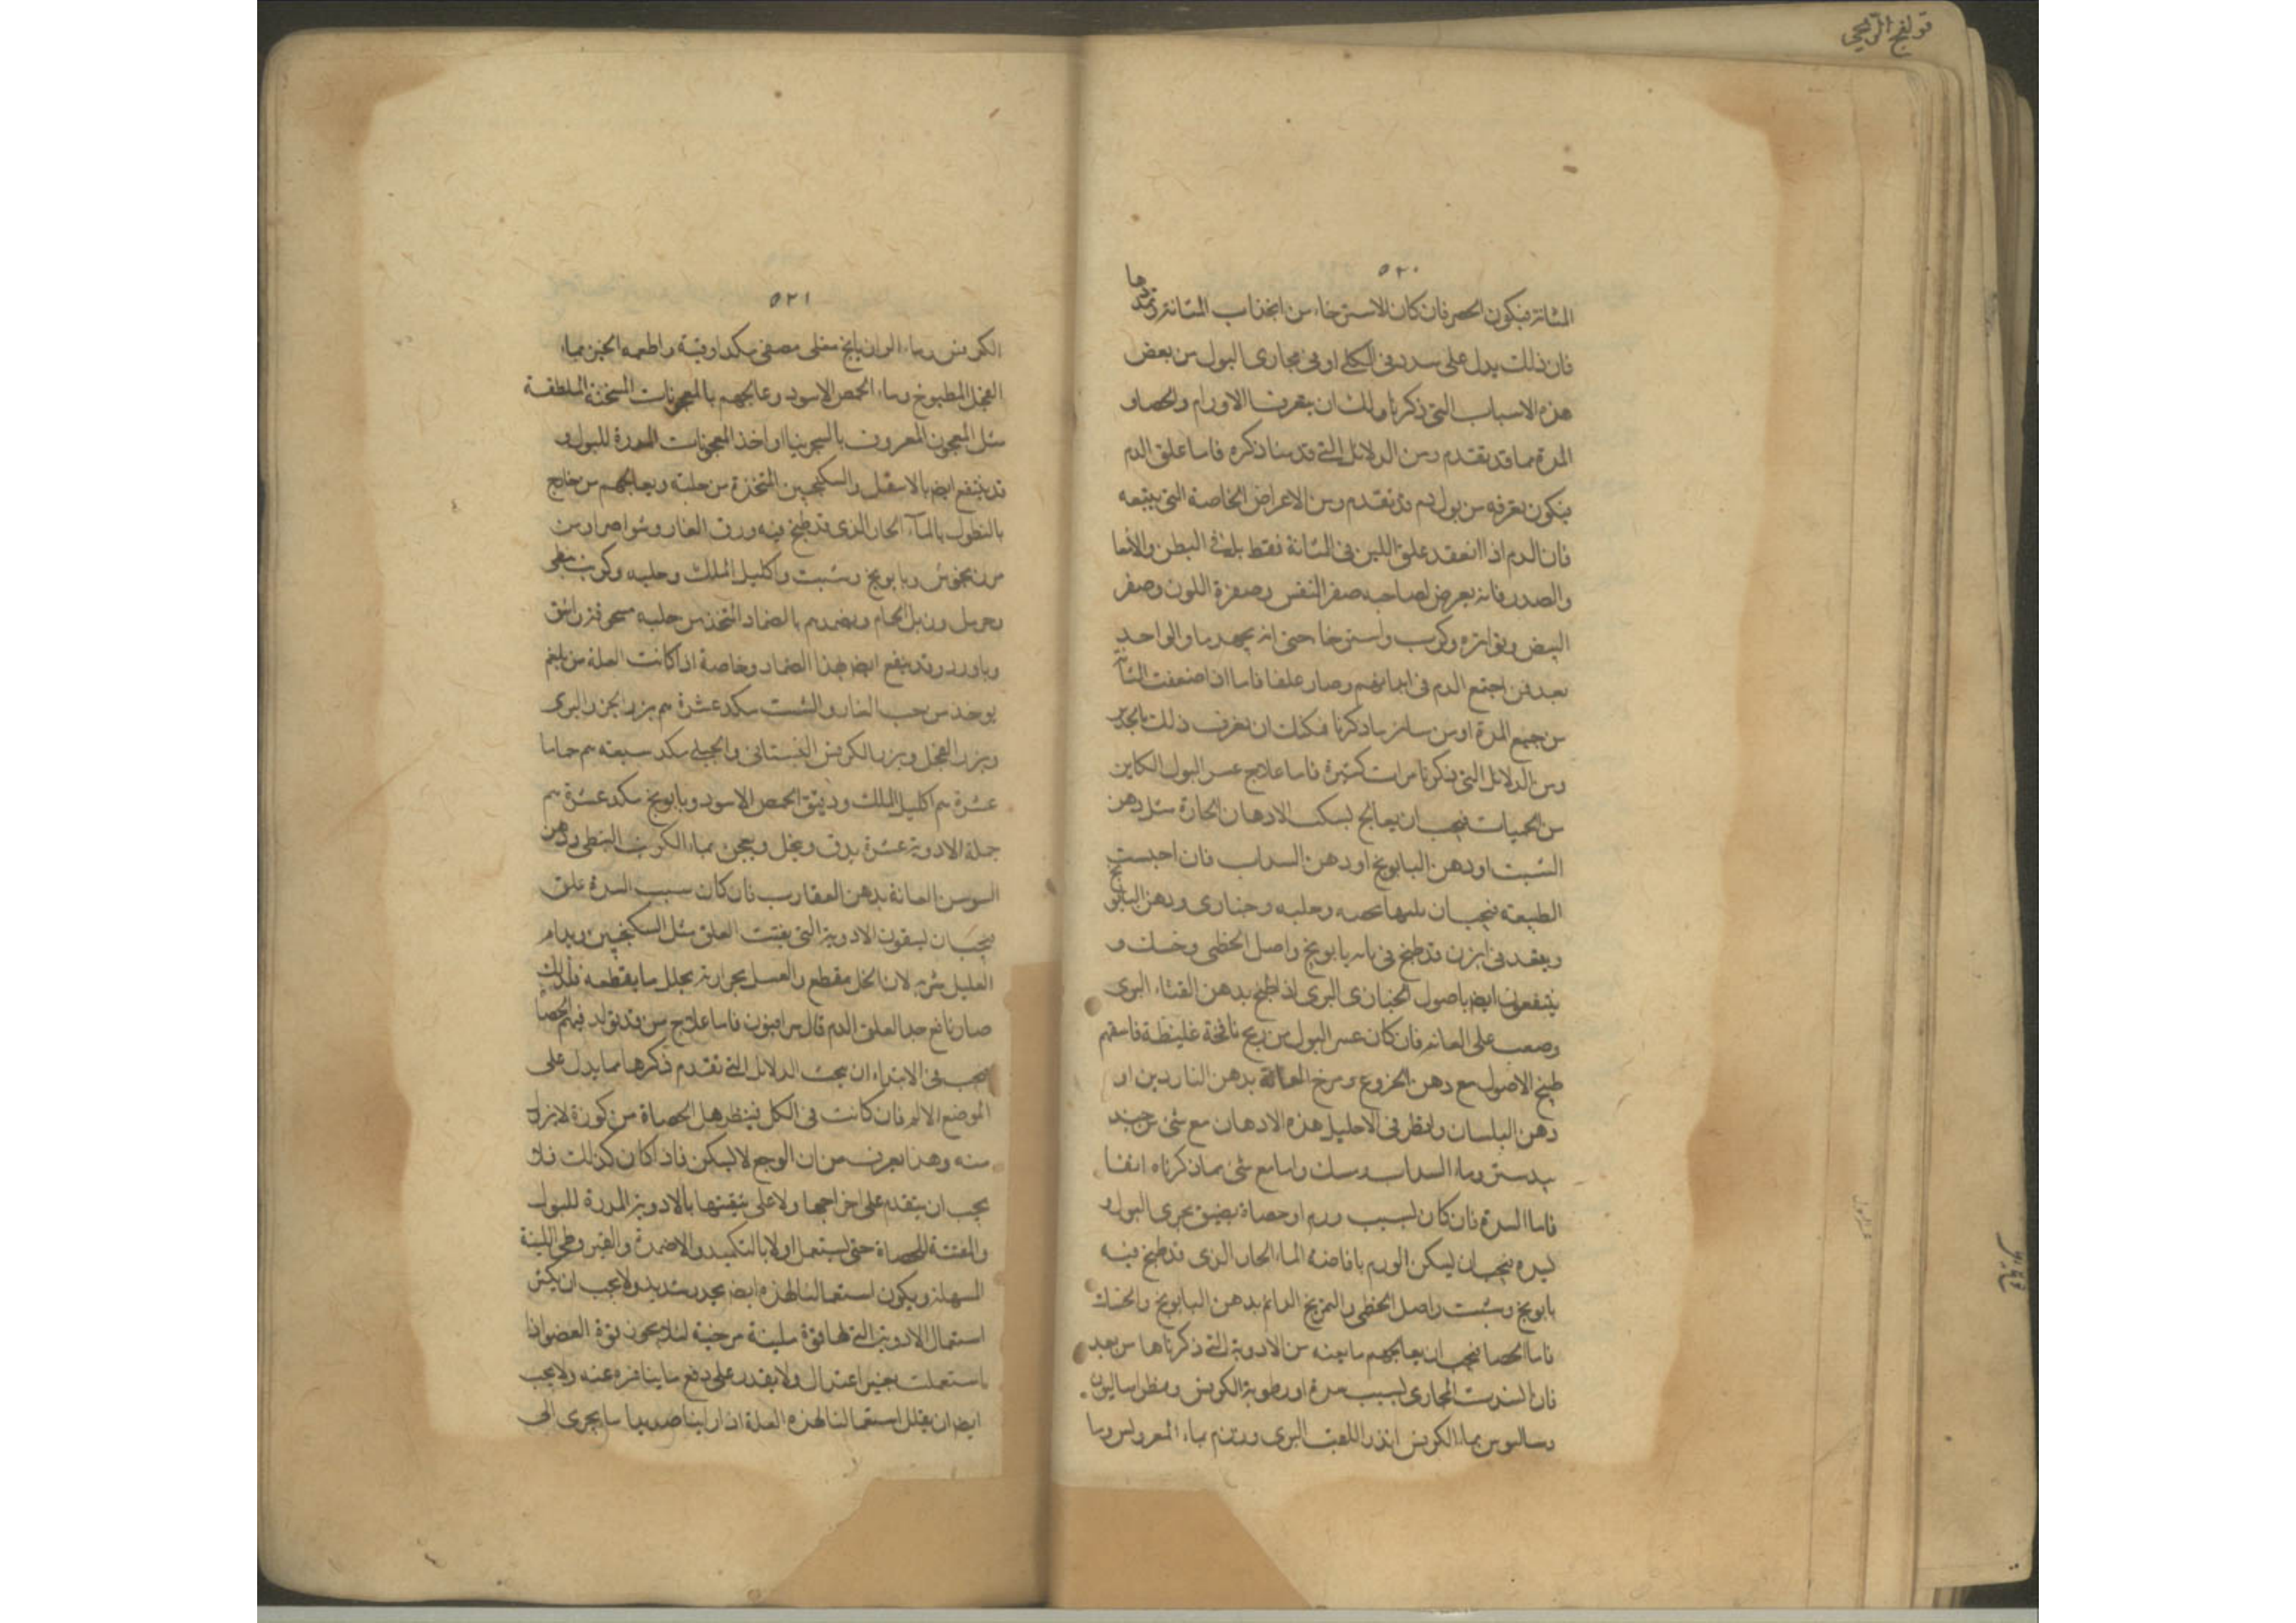 قولنج الريحي
٥٢٠
المثانة فيكون الحصر فان كان الاسترخاء من انجذاب المثانة وتمددها
فان ذلك يدل على سدد فى الكلى او فى مجارى البول من بعض
هذه الاسباب التى ذكرنا ولك ان يعرف الاورام والحصاو
المدة مما قد تقدم ومن الدلائل التى قدمنا ذكره فاما علق الدم
فيكون تعرفه من بول دم قد تقدم ومن الاعراض الخاصة التى يتبعه
فان الدم اذا انعقد علق اللبن فى المثانة فقط بل فى البطن والأمعا
والصدر فانه يعرض لصاحبه صغر النفس وصفرة اللون وصغر
النبض وتواتره وكرب واسترخا حتى انه
بعد فن اجتمع الدم فى ابدانهم وصار علقا فاما اذا ضعفت المثانة
من جميع المدة او من سائر ما ذكرنا فيمكنك ان تعرف ذلك
ومن الدلائل التى ذكرنا مرات كثيرة فاما علاج عسر البول الكاين
من الحميات فيجب ان يعالج بسكب الادهان الحارة مثل دهن
الشبت او دهن البابونج او دهن السداب فان احبست
الطبيعة فيجب ان وحلبه وخبازى ودهن البابونج
ويقعد فى ابزن قد طبخ فى مائه بابونج واصل الخطمى وخسك و
ينتفعون ايضا باصول الخبازى البرى اذا طبخ بدهن القثاء البرى
وضعت على العانة فان كان عسر البول من ريح نافخة غليظة فاسقهم
طبخ الاصول مع دهن الخروع ومرخ العانة بدهن الناردين او
دهن البلسان وليقطر فى الاحليل هذه الادهان مع شئ من جند
بيدستر وماء السداب ومسك واما مع شئ مما ذكرناه انفا
فاما السدة فان كان بسبب ورم او حصاة يضيق مجرى البول و
ليده فيجب ان يسكن الورم بافاضة الماء الحار الذى قد طبخ فيه
بابونج وشبت واصل الخطمى والتمريخ الدائم بدهن البابونج والخسك
فاما الحصا فيجب ان يعالجهم بما بعينه من الادوية التى ذكرناها من بعد
فان انسدت المجارى بسبب مدة او رطوبة الكرفس
بماء الكرفس البرى
٥٢١
الكرفس وماء الرازيانج مغلى مصفى مكد اوقية واطعمه الخبز بماء
الفجل المطبوخ وماء الحمص الاسود وعالجهم بالمعجونات المسخنة الملطفة
مثل المعجون المعروف بالسجزينيا او اخذ المعجونات المدرة للبول و
قد ينتفع ايضا بالاسقيل والسكنجبين المتخذة من خلته ويعالجهم من خارج
بالنطول بالمآء الحار الذى قد طبخ فيه ورق الغار وشواصرا ومن
مرزنجوش وبابونج وشبت واكليل الملك وحلبه وكرنب نبطى
وحرمل وزبل الحمام ويضمدهم بالضماد المتخذ من حلبه
وقد ينفع ايضا بهذا الضماد وخاصة اذا كانت العلة من بلغم
يوخذ من حب الغار والشبت مكد عشرة هم بزر الجزر البرى
وبزر الفجل وبزر الكرفس البستانى والجبلى مكد سبعة هم حماما
عشرة هم اكليل الملك ودقيق الحمص الاسود وبابونج مكد عشرة هم
جملة الادوية عشرة يدق وينخل ويعجن بماء الكرنب النبطى ودهن
السوسن العانة بدهن العقارب فان كان سبب السدة علق
فيجب ان يسقون الادوية التى يفتت العلق مثل السكنجبين ويدام
العليل شربه لان الخل مقطع والعسل بحرارته يحلل ما يقطعه فلذلك
صار نافع جدا لعلق الدم قال سرافيون فاما علاج من قد تولد فيهم الحصا
يجب فى الابتداء ان يبحث الدلائل التى تقدم ذكرها مما يدل على
الموضع الالم فان كانت فى الكلى فينظر هل الحصاة مركوزة لا يزول
منه وهذا يعرف من ان الوجع لا يسكن فاذا كان كذلك فلا
يجب ان يتقدم على اخراجها ولا على بالادوية المدرة للبول
والمفتتة للحصاة حتى يستعمل اولا بالتكميد والاضمدة والقيروطى اللينة
السهلة ويكون استعمالنا لهذه ايضا بحذر شديد ولا يجب ان يكثر
استعمال الادوية التى لها قوة ملينة مرخية لئلا قوة العضو اذا
استعملت بغير اعتدال ولا يقدر على دفع ما ينافره عنه ولا يجب
ايضا ان يقلل استعمالنا لهذه العلة اذا راينا ما يجرى الى